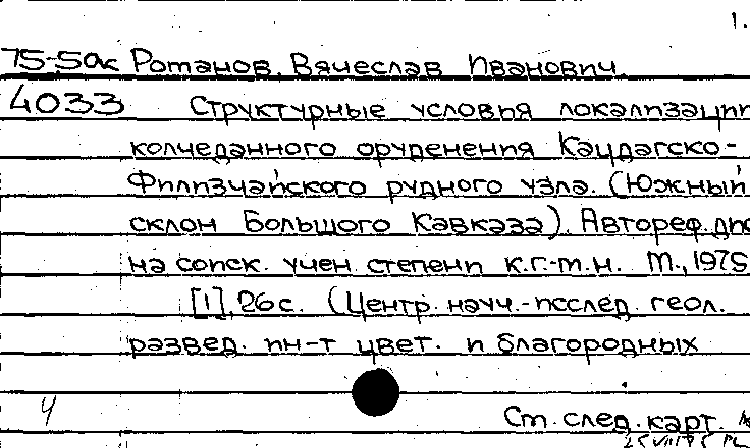 1.
75-5ак Ротанов, Вячеслав Иванович.
4033 Структурные условия локализации
колчеданного оруденения Кацдагско-
Филизчайского рудного узла. (Южный
склон Большого Кавказа). Автореф. дис
на соиск. учен. степени к.г.-м.н. М., 1975
[1], 26 с. (Центр. науч.-исслед. геол.
развед. ин-т цвет. и благородных
Ч См. след. карт.